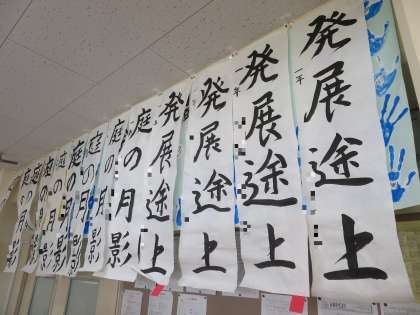 発展途上
一年
発展途上
発展途上
年
発展途上
庭の月影
庭の月影
庭の月影
庭の月影
庭の月影
庭の月影
庭の月影